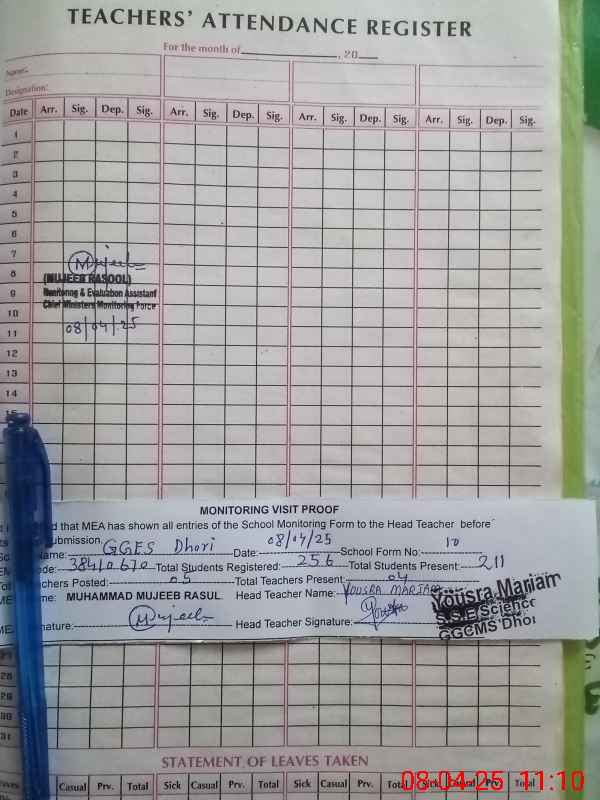 TEACHERS' ATTENDANCE REGISTER
For the month of , 20
Name:
Designation:
Date Arr. Sig. Dep. Sig. Arr. Sig. Dep. Sig. Arr. Sig. Dep. Sig. Arr. Sig. Dep. Sig.
1
2
3
4
5
6
7
Mujeeb
8
(MUJEEB RASOOL)
9 Monitoring & Evaluation Assistant
Chief Ministers Monitoring Force
10
08/04/25
11
12
13
14
15
MONITORING VISIT PROOF
that MEA has shown all entries of the School Monitoring Form to the Head Teacher before
submission.
Name: GGES Dhori Date: 08/04/25 School Form No: 10
ode: 38410670 Total Students Registered: 256 Total Students Present: 211
chers Posted: 05 Total Teachers Present: 04
me: MUHAMMAD MUJEEB RASUL Head Teacher Name: YOUSRA MARIAM
Yousra Mariam
S.S.E Science
GGCMS Dhori
nature: Mujeeb Head Teacher Signature:
28
29
30
31
STATEMENT OF LEAVES TAKEN
Leaves Casual Prv. Total Sick Casual Prv. Total Sick Casual Prv. Total Sick Casual Prv. Total
08-04-25 11:10